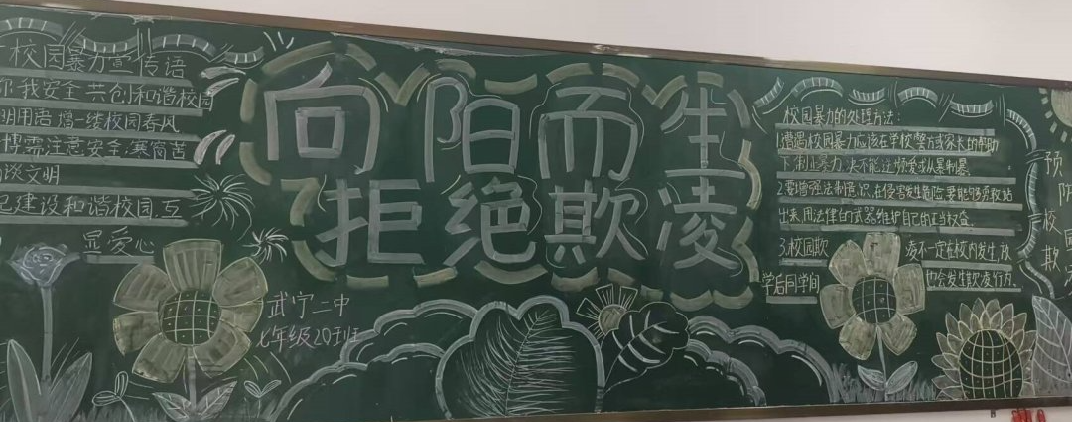 校园暴力宣传语
你我安全共创和谐校园
明用语增一缕校园春风
博需注意安全寒窗苦
谈文明
建设和谐校园,互
显爱心
向阳而生
拒绝欺凌
武宁二中
七年级20班
校园暴力的处理方法:
1.遭遇校园暴力应该在学校警方或家长的帮助
下制止暴力,决不能迁就或以暴制暴.
2.要增强法制意识,在侵害发生前应要能够勇敢站
出来,用法律的武器维护自己的正当权益.
3.校园欺凌不一定在校内发生,放
学后同学间也会发生欺凌行为.
预防
校园
欺